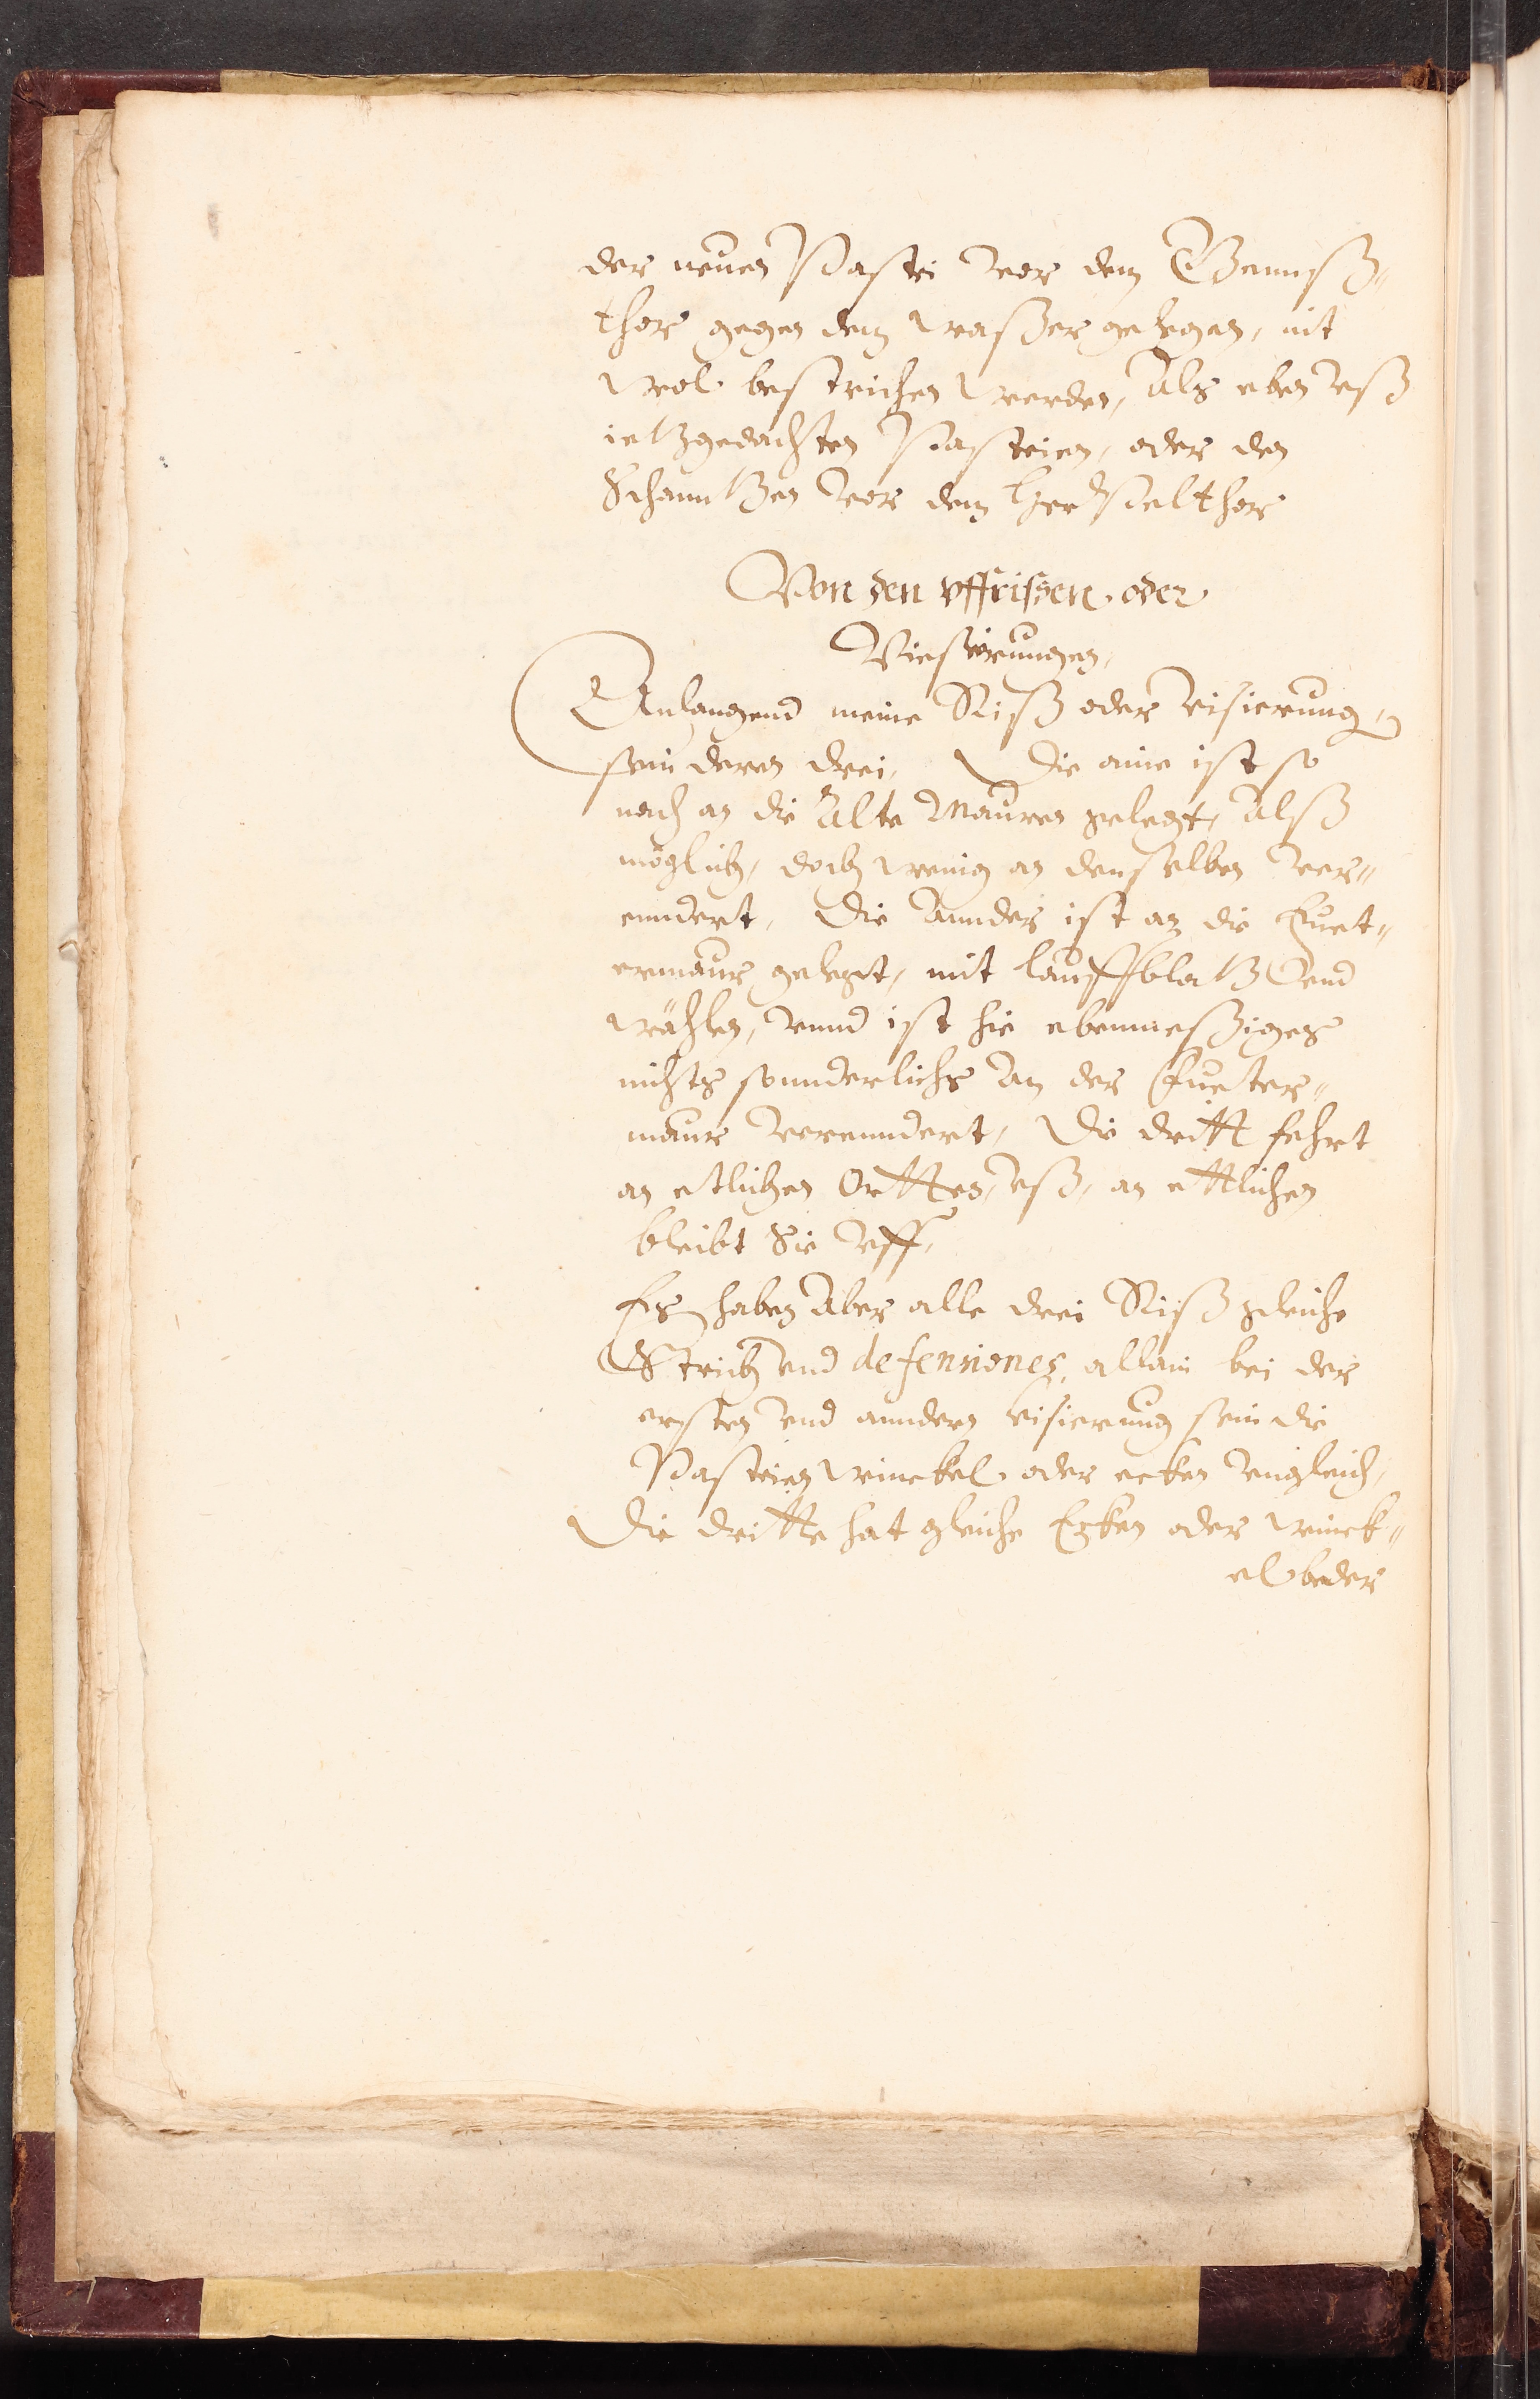 der neuen Pastei vor dem Gennß¬
thor gegen dem waßer gelegen, nit
wol bestrichen werden, Als eben vß
ietzgedachten Pasteien, oder den
Schanntzen vor dem thor
Von den vffrißen oder
Viesirungen,
Anlangend meine Riß oder visierung,
sein deren drei, Die eine ist so
nach an die Alte Mauren gelegt, Alß
möglich, doch wenig an denselben ver¬
enndert, Die annder ist an die Fuet¬
ermaur gelegt, mit lauffblatz vnd
wählen, vnnd ist hie ebenmeßiges
nichts sonnderlichs An der Fueter¬
maur verenndert, Die dritt fehrt
an etlichen Ortten, vß, an ettlichen
bleibt Sie vff,
Es haben Aber alle drei Riß gleiche
Strich vnd defensiones, allain bei der
ersten vnd anndern visierung sein die
Pasteien winckel oder ecken vngleich,
Die dritte hat gleiche Ecken oder winck¬
el beder